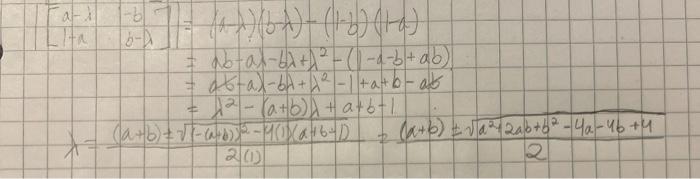 |[a-λ 1-b; 1-a b-λ]| = (a-λ)(b-λ) - (1-b)(1-a)
= ab-aλ-bλ+λ² - (1-a-b+ab)
= ab-aλ-bλ+λ²-1+a+b-ab
= λ² - (a+b)λ + a+b-1
λ = ((a+b) ± √((-(a+b))² - 4(1)(a+b-1))) / 2(1) = ((a+b) ± √(a²+2ab+b²-4a-4b+4)) / 2